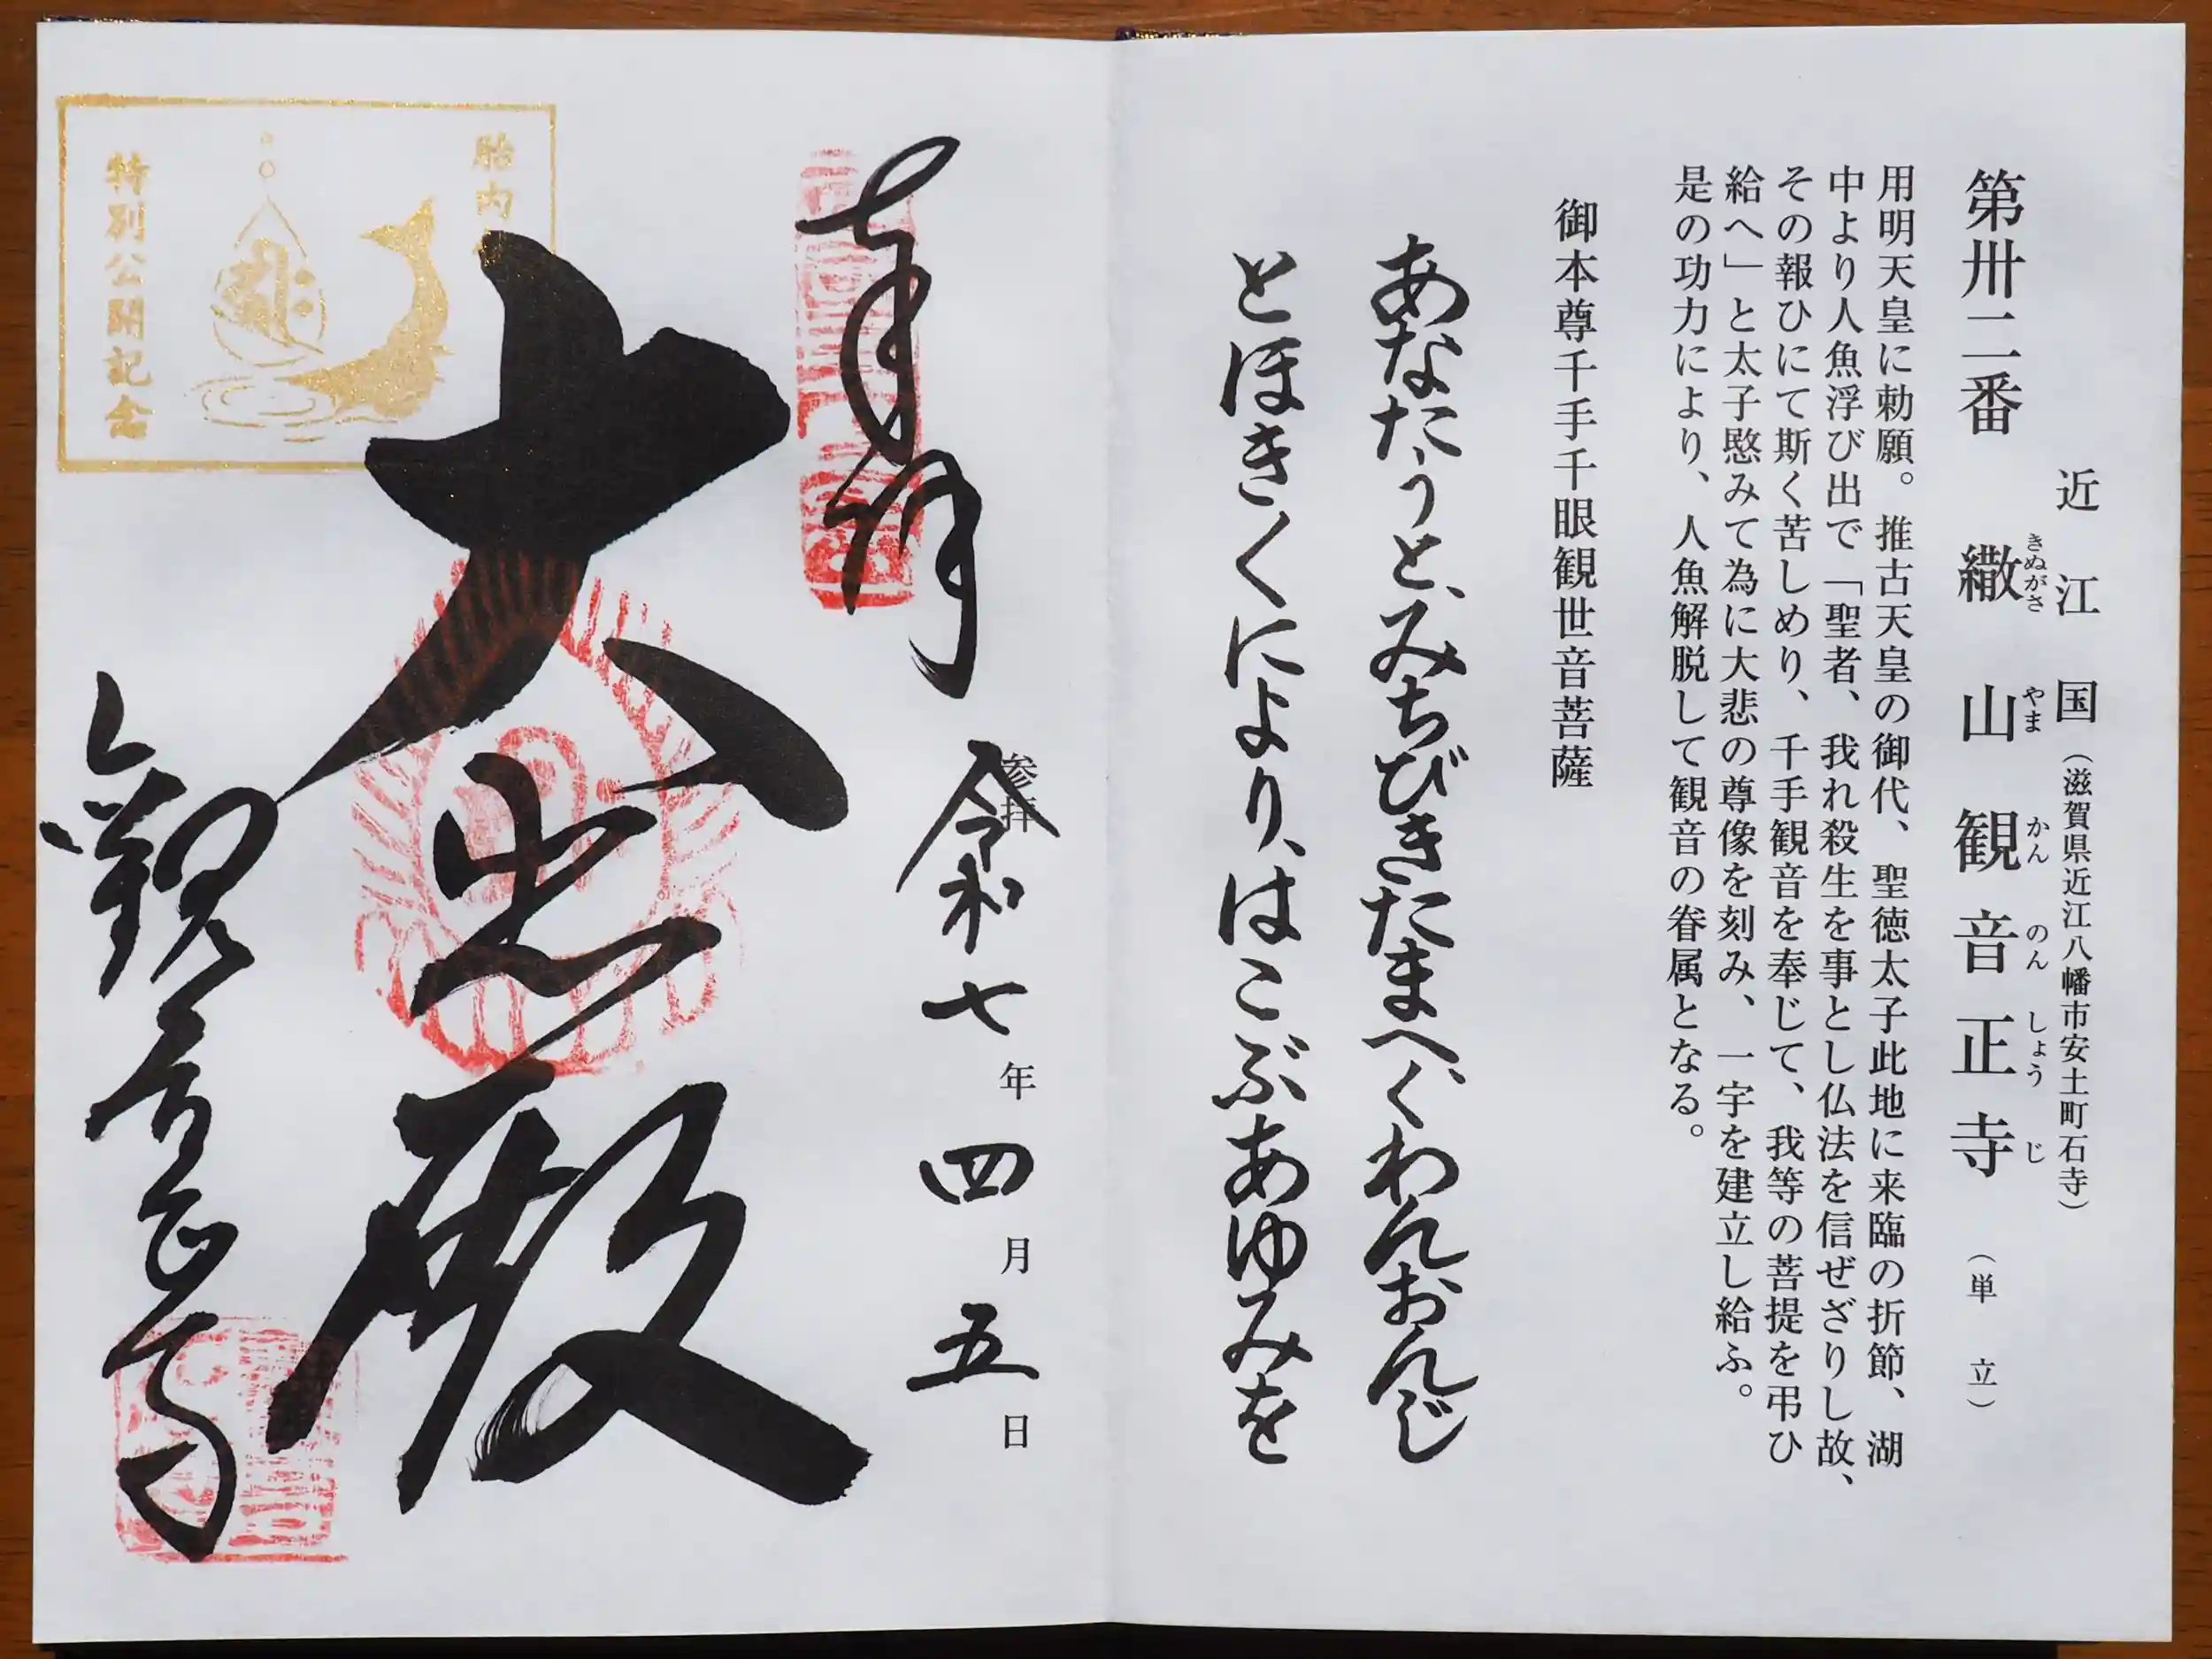 近江国（滋賀県近江八幡市安土町石寺）
第卅二番 繖山観音正寺（単立）
きぬがさ やま かん のん しょう じ
用明天皇に勅願。推古天皇の御代、聖徳太子此地に来臨の折節、湖
中より人魚浮び出で「聖者、我れ殺生を事とし仏法を信ぜざりし故、
その報ひにて斯く苦しめり、千手観音を奉じて、我等の菩提を弔ひ
給へ」と太子愍みて為に大悲の尊像を刻み、一宇を建立し給ふ。
是の功力により、人魚解脱して観音の眷属となる。
御本尊千手千眼観世音菩薩
あなたうと、みちびきたまへ、くわんおんじ
とほきくにより、はこぶあゆみを
奉拝
参拝
令和七年四月五日
大悲殿
観音正寺
胎内
特別公開記念